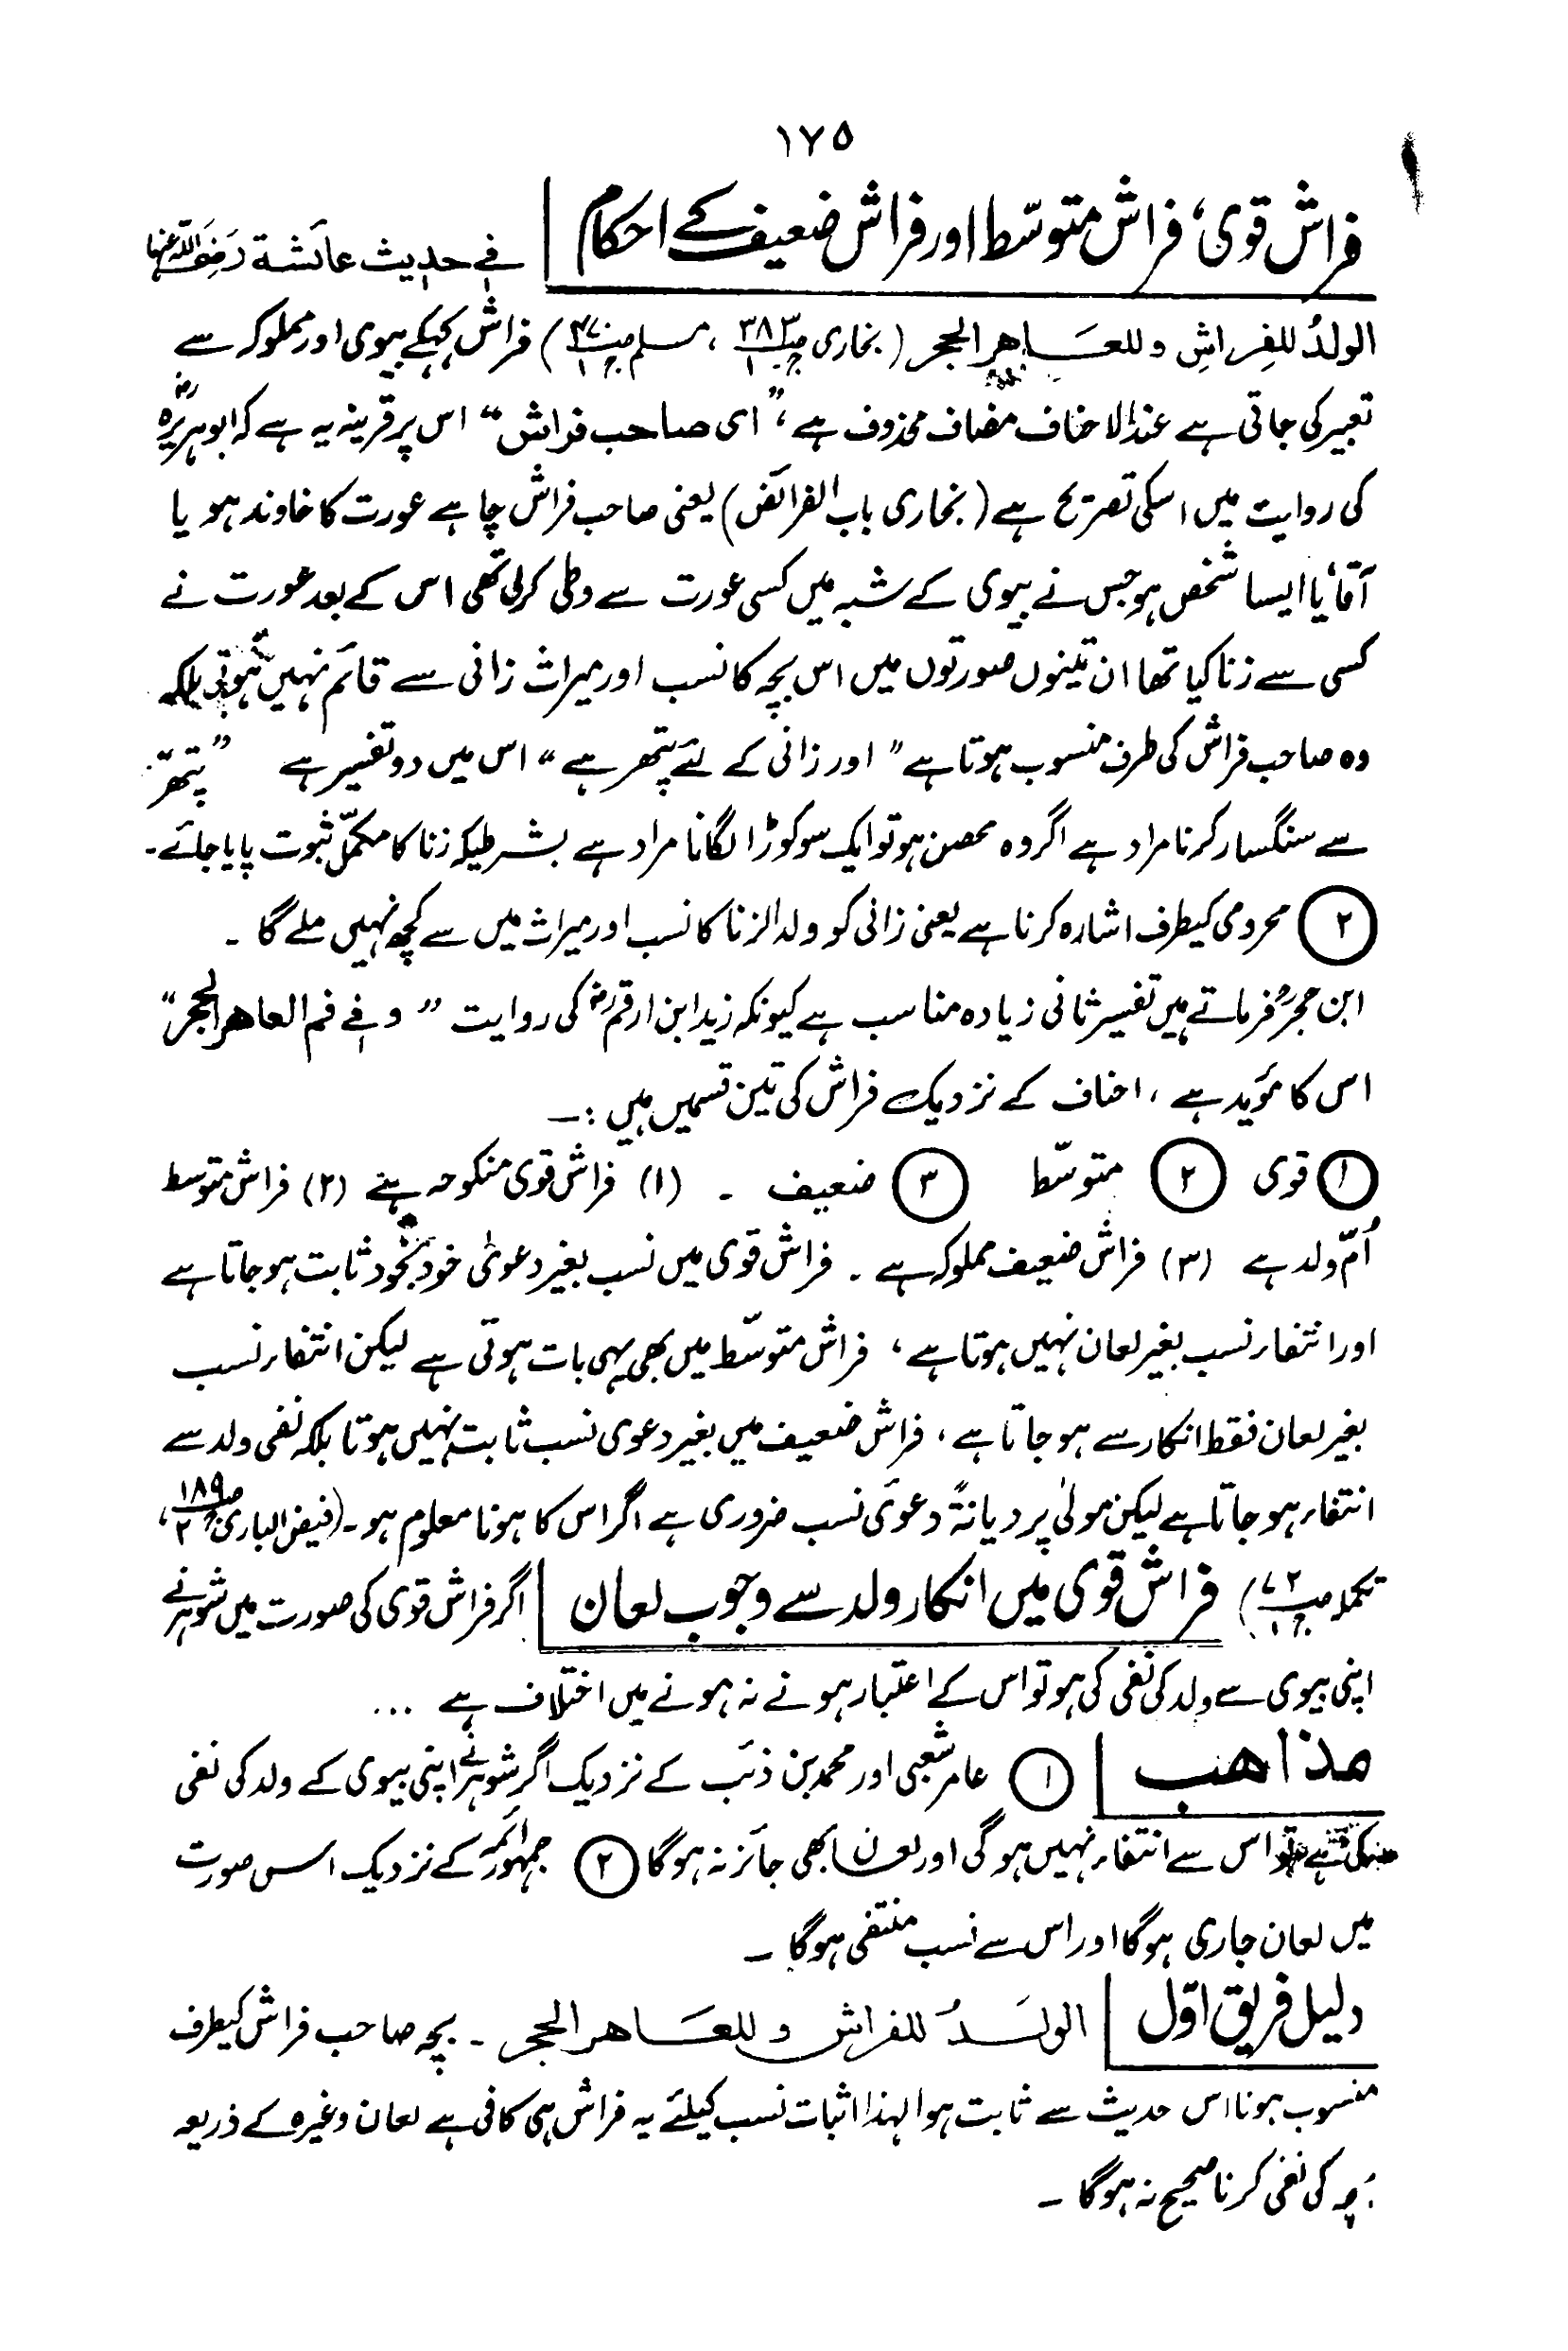 ۱۷۵
فراش قوی، فراش متوسّط اور فراش ضعیف کے احکام | فی حدیث عائشة رَضِیَ اللہ عنہا
الولدُ للفِراشِ وللعَاهر الحجر (بخاری ص۳۸۳ ج۱، مسلم ص۴۷۰ ج۱) فراش کہکے بیوی اور مملوکہ سے
تعبیر کی جاتی ہے عندالاحناف مضاف محذوف ہے، ”ای صاحب فراش“ اس پر قرینہ یہ ہے کہ ابوہریرہؓ
کی روایت میں اسکی تصریح ہے (بخاری باب الفرائض) یعنی صاحب فراش چاہے عورت کا خاوند ہو یا
آقا یا ایسا شخص ہو جس نے بیوی کے شبہ میں کسی عورت سے وطی کرلی تھی اس کے بعد عورت نے
کسی سے زنا کیا تھا ان تینوں صورتوں میں اس بچہ کا نسب اور میراث زانی سے قائم نہیں ہوتی بلکہ
وہ صاحب فراش کی طرف منسوب ہوتا ہے ” اور زانی کے لئے پتھر ہے “ اس میں دو تفسیر ہے ” پتھر “
سے سنگسار کرنا مراد ہے اگر وہ محصن ہو تو ایک سو کوڑا لگانا مراد ہے بشرطیکہ زنا کا مکمّل ثبوت پایا جائے۔
۲ محرومی کیطرف اشارہ کرنا ہے یعنی زانی کو ولدالزنا کا نسب اور میراث میں سے کچھ نہیں ملے گا ۔
ابن حجرؒ فرماتے ہیں تفسیر ثانی زیادہ مناسب ہے کیونکہ زید ابن ارقمؓ کی روایت ” وفی فم العاهر الحجر “
اس کا مؤید ہے ، احناف کے نزدیک فراش کی تین قسمیں ہیں :ـ
۱ قوی ۲ متوسّط ۳ ضعیف ۔ (۱) فراش قوی منکوحہ ہے (۲) فراش متوسط
اُمّ ولد ہے (۳) فراش ضعیف مملوکہ ہے ۔ فراش قوی میں نسب بغیر دعویٰ خود بخود ثابت ہوجاتا ہے
اور انتفاء نسب بغیر لعان نہیں ہوتا ہے، فراش متوسّط میں بھی یہی بات ہوتی ہے لیکن انتفاء نسب
بغیر لعان فقط انکار سے ہوجاتا ہے، فراش ضعیف میں بغیر دعوی نسب ثابت نہیں ہوتا بلکہ نفی ولد سے
انتفاء ہوجاتا ہے لیکن مولیٰ پر دیانةً دعویٔ نسب ضروری ہے اگر اس کا ہونا معلوم ہو۔ (فیض الباری ص۱۸۹ ج۲،
تکملہ ص۷۲ ج۱) فراش قوی میں انکار ولد سے وجوب لعان | اگر فراش قوی کی صورت میں شوہر نے
اپنی بیوی سے ولد کی نفی کی ہو تو اس کے اعتبار ہونے نہ ہونے میں اختلاف ہے ...
مذاهب | ۱ عامر شعبی اور محمد بن ذئب کے نزدیک اگر شوہر نے اپنی بیوی کے ولد کی نفی
کی ہے تو اس سے انتفاء نہیں ہوگی اور لعان بھی جائز نہ ہوگا ۲ جمہور ائمہ کے نزدیک اس صورت
میں لعان جاری ہوگا اور اس سے نسب منتفی ہوگا ۔
دلیل فریق اوّل | الولَدُ للفراش وللعَاهر الحجر ۔ بچہ صاحب فراش کیطرف
منسوب ہونا اس حدیث سے ثابت ہوا لہذا اثبات نسب کیلئے یہ فراش ہی کافی ہے لعان وغیرہ کے ذریعہ
بچہ کی نفی کرنا صحیح نہ ہوگا ۔